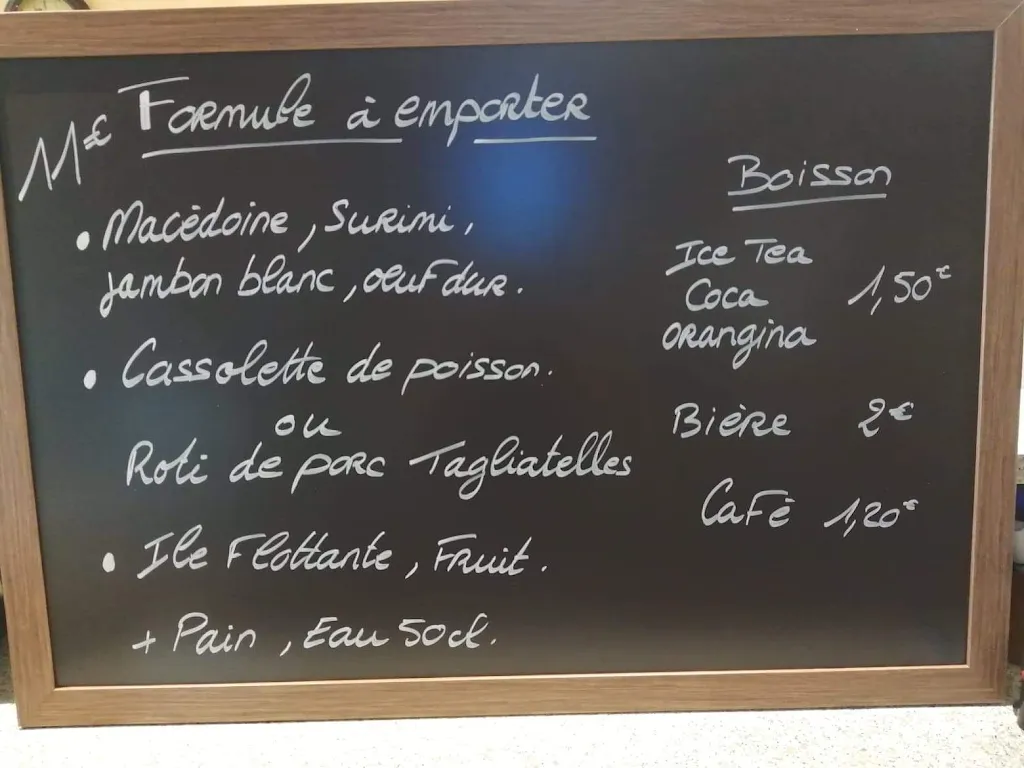 11€ Formule à emporter
• Macèdoine, Surimi,
jambon blanc, oeuf dur.
• Cassolette de poisson.
ou
Roti de porc Tagliatelles
• Ile Flottante, Fruit.
+ Pain, Eau 50cl.
Boisson
Ice Tea
Coca 1,50€
Orangina
Bière 2€
Cafè 1,20€